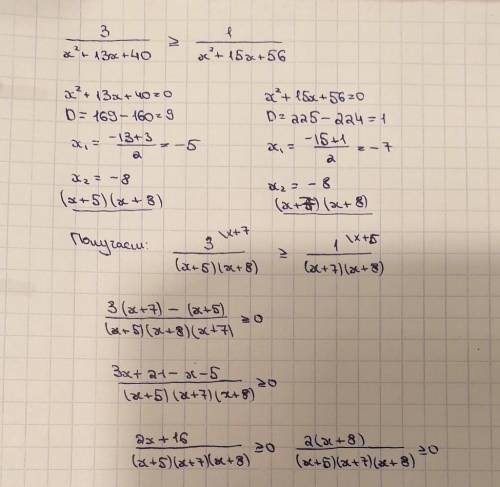 3/(x²+13x+40) ≥ 1/(x²+15x+56)
x²+13x+40=0
D=169-160=9
x₁=(-13+3)/2=-5
x₂=-8
(x+5)(x+8)
x²+15x+56=0
D=225-224=1
x₁=(-15+1)/2=-7
x₂=-8
(x+7)(x+8)
Получаем: 3\x+7/((x+5)(x+8)) ≥ 1\x+5/((x+7)(x+8))
(3(x+7)-(x+5))/((x+5)(x+8)(x+7)) ≥0
(3x+21-x-5)/((x+5)(x+7)(x+8)) ≥0
(2x+16)/((x+5)(x+7)(x+8)) ≥0 (2(x+8))/((x+5)(x+7)(x+8)) ≥0